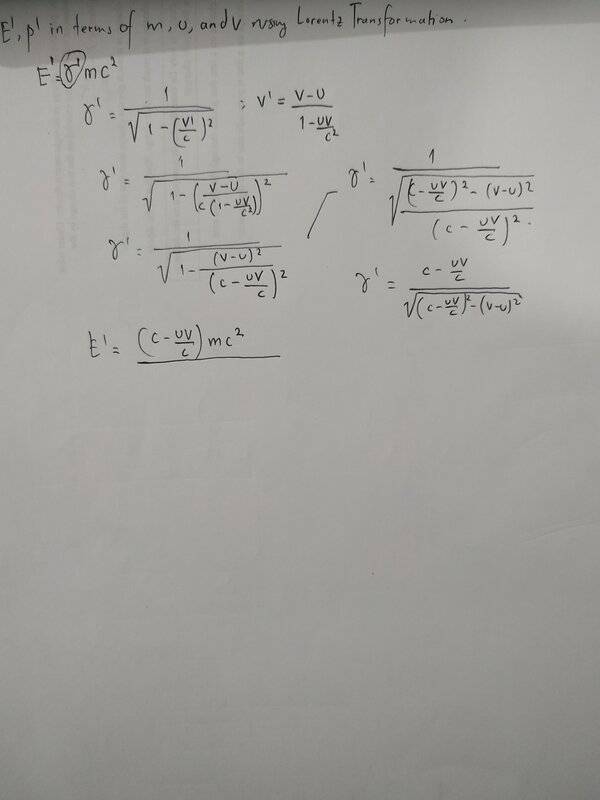 E', p' in terms of m, u, and v using Lorentz Transformation.
E' = γ' mc²
γ' = 1 / √(1 - (v'/c)²) ; v' = (v-u) / (1 - uv/c²)
γ' = 1 / √(1 - ((v-u) / (c(1 - uv/c²)))²)
γ' = 1 / √(1 - (v-u)² / (c - uv/c)²)
γ' = 1 / √(((c - uv/c)² - (v-u)²) / (c - uv/c)²)
γ' = (c - uv/c) / √((c - uv/c)² - (v-u)²)
E' = (c - uv/c) mc²